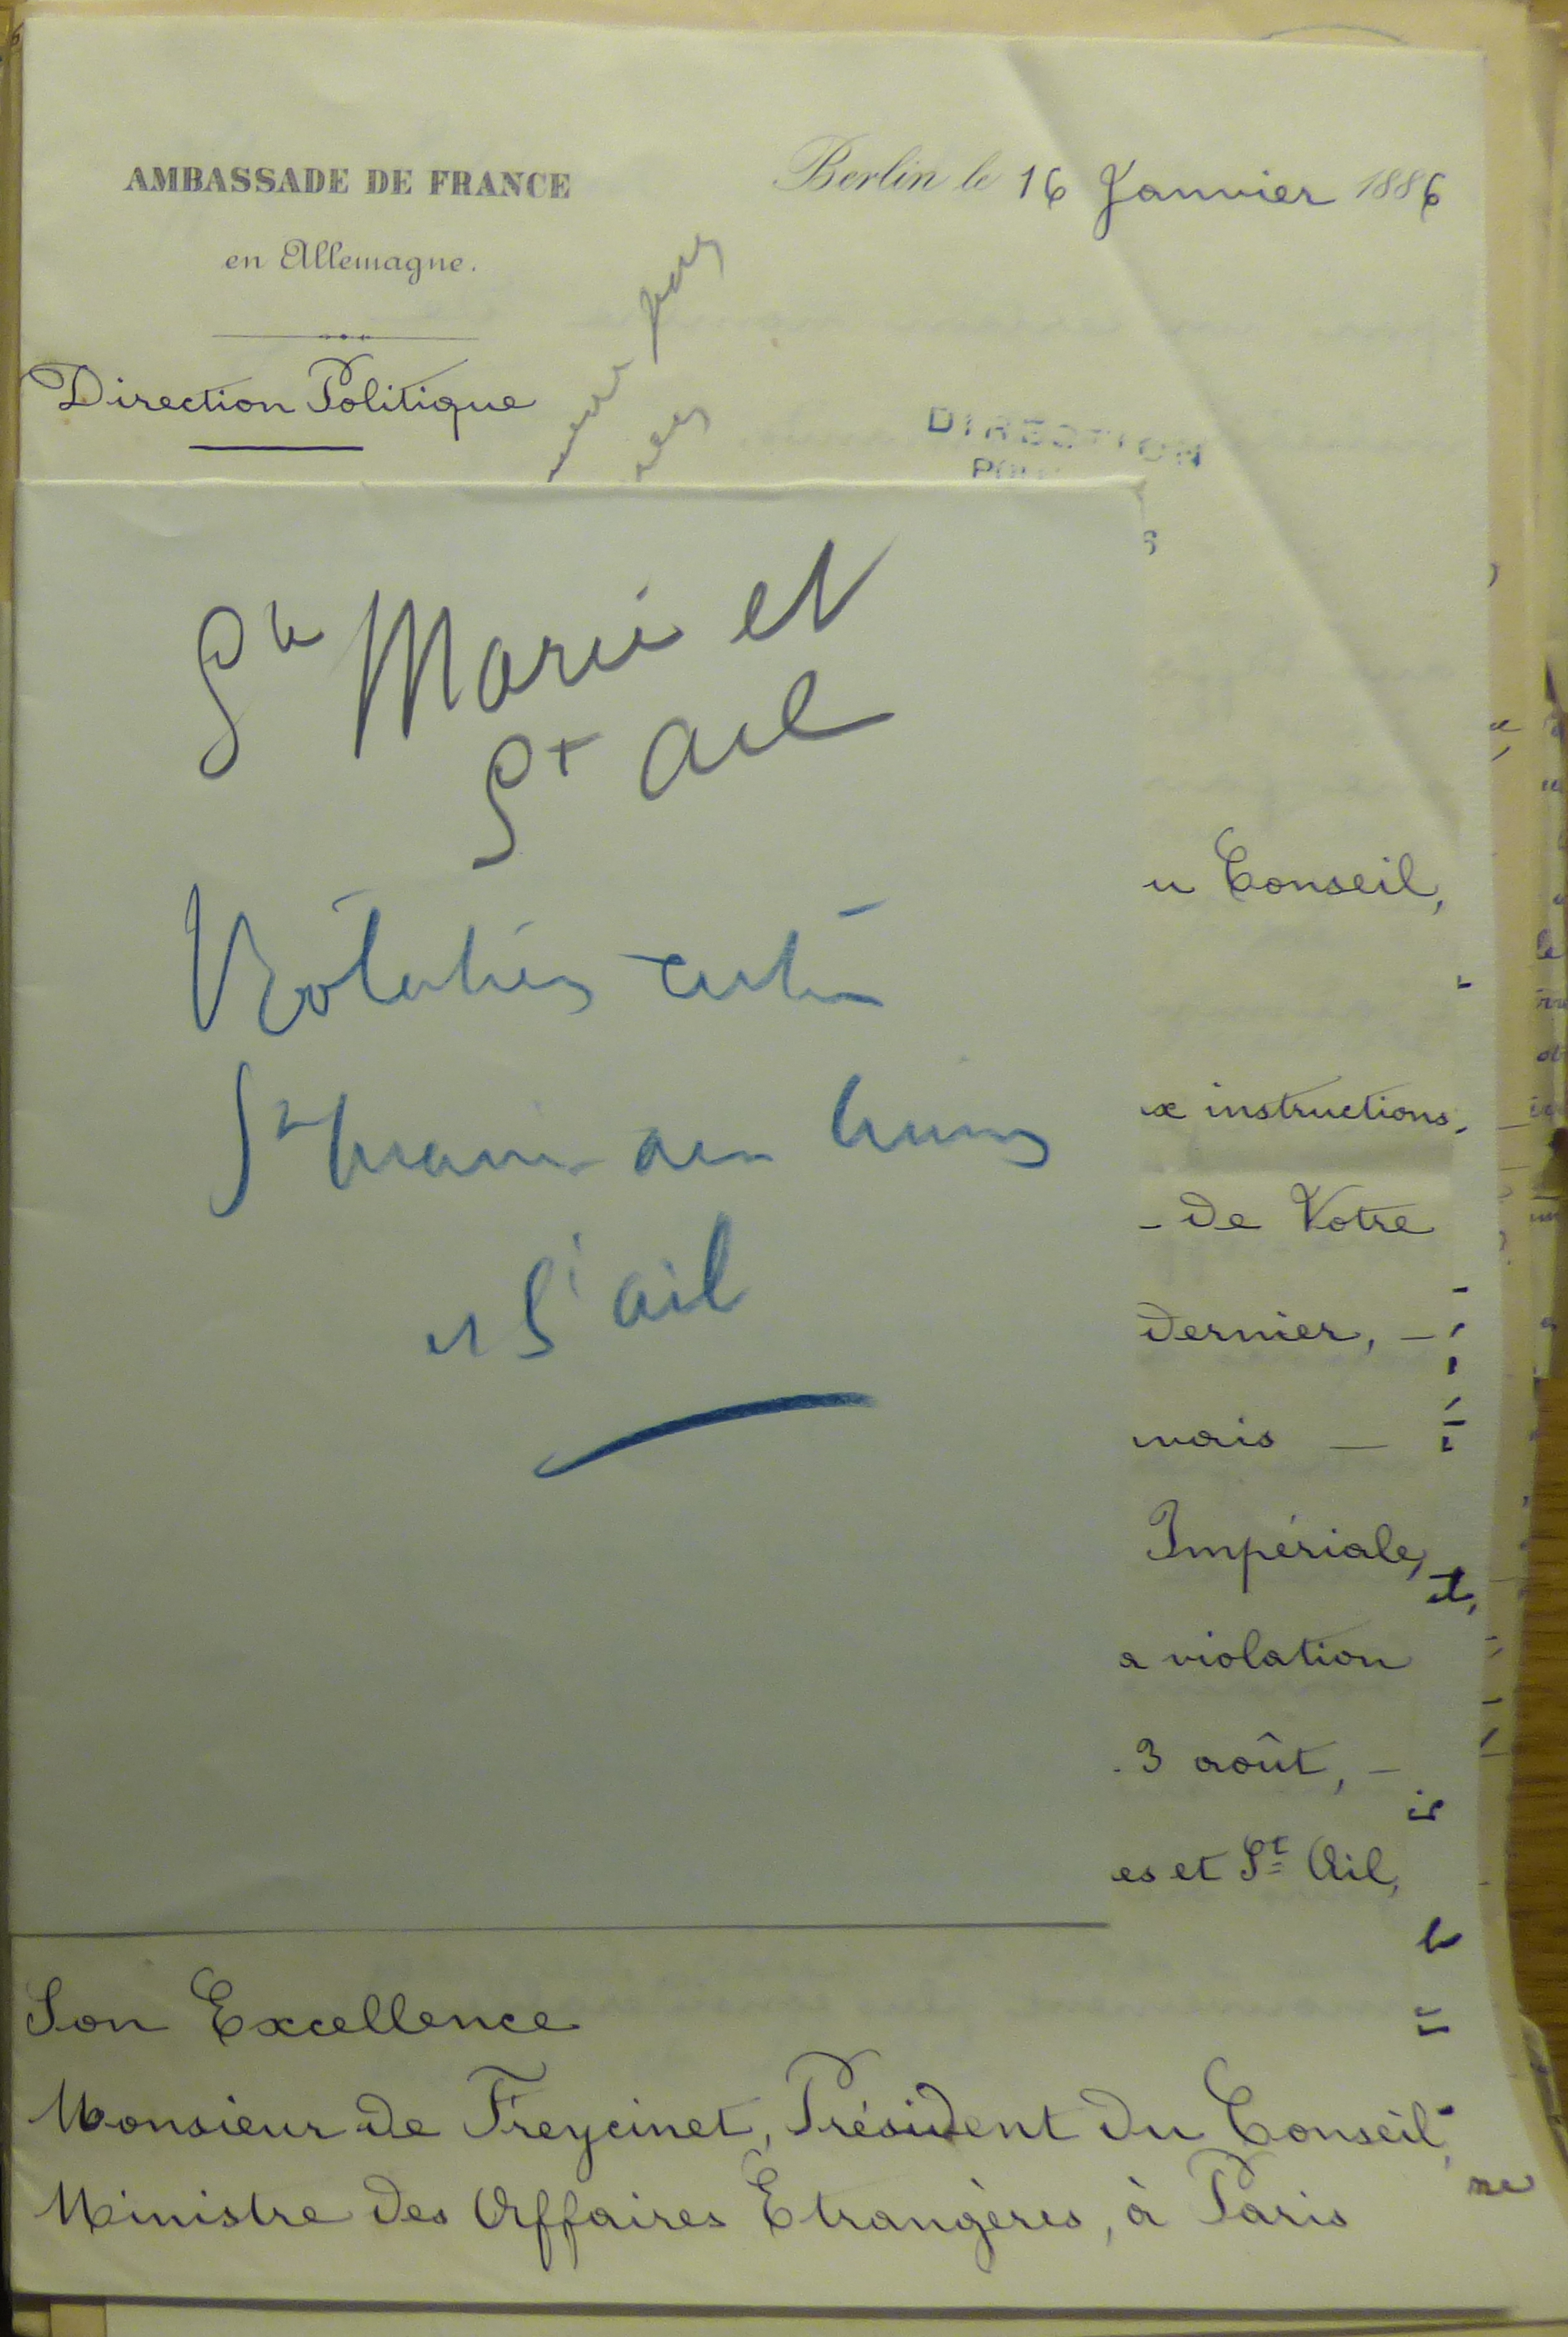 AMBASSADE DE FRANCE
en Allemagne.
Berlin le 16 Janvier 1886
Direction Politique
pas
DIRECTION
Ste Marie et
St Ail
Ste Marie aux
et St Ail
u Conseil,
x instructions
- de Votre
dernier, -
mais -
Impériale,
a violation
3 août, -
es et St Ail,
Son Excellence
Monsieur de Freycinet, Président du Conseil,
Ministre des Affaires Etrangères, à Paris